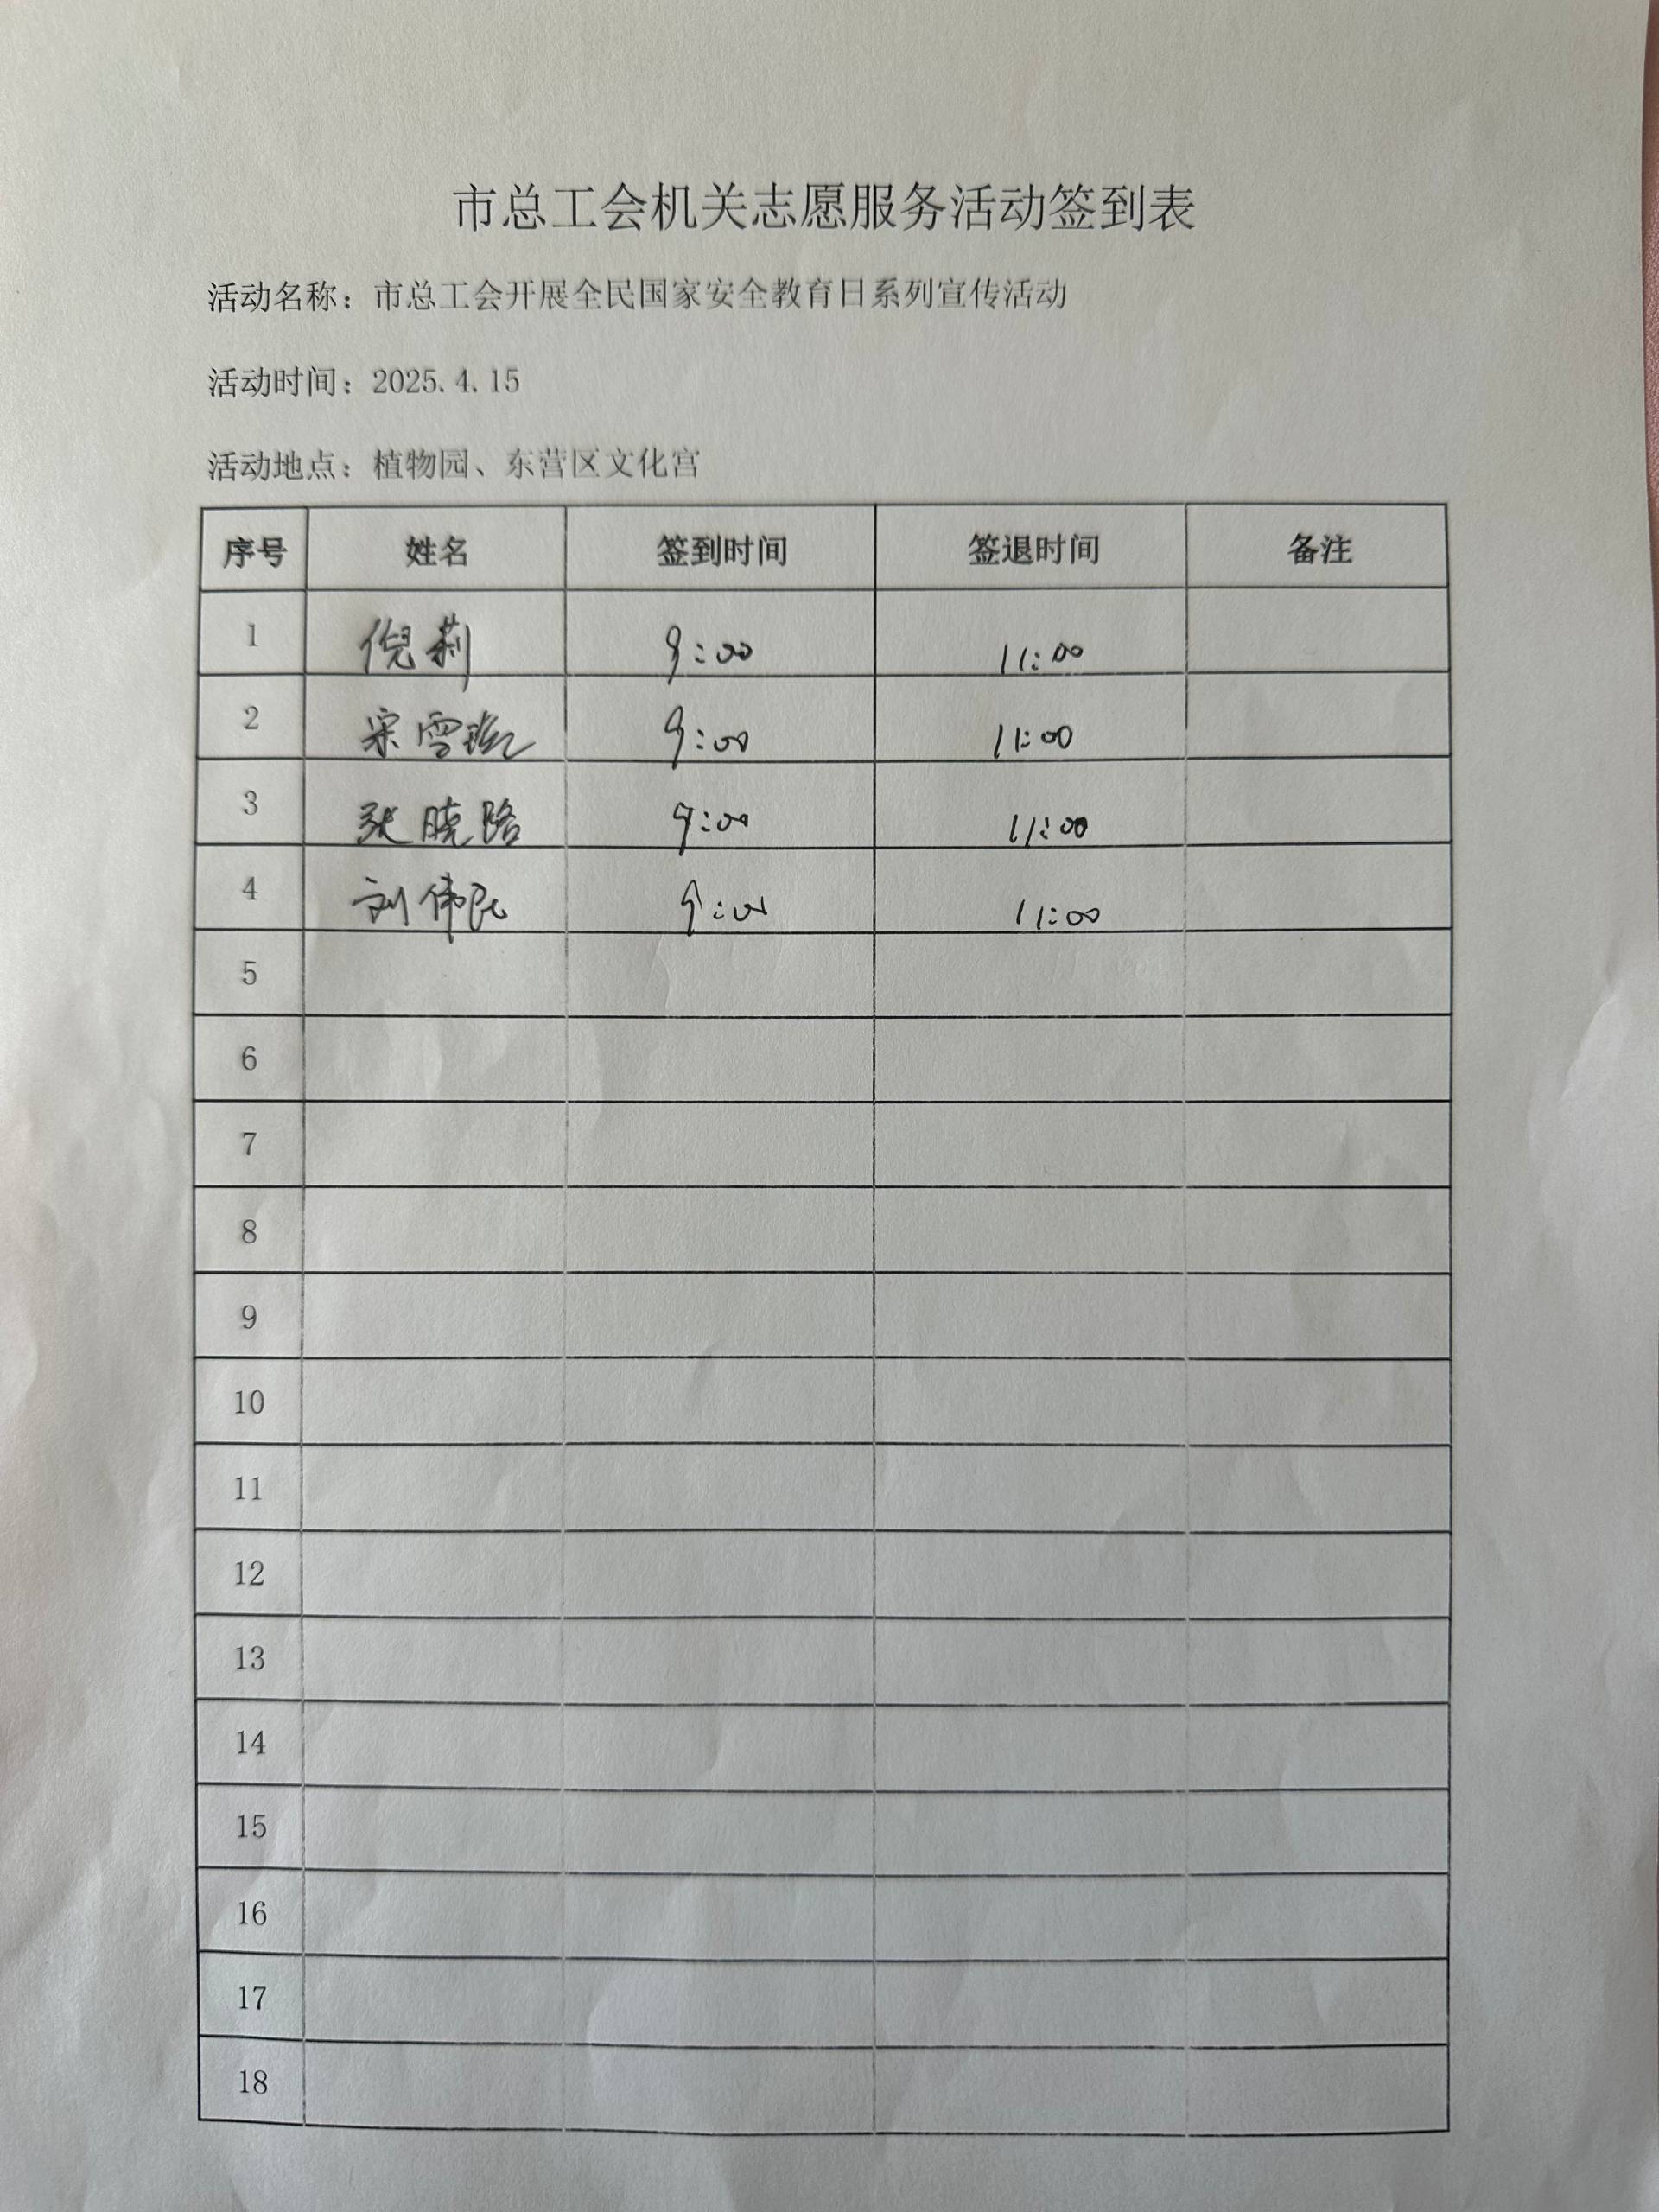 市总工会机关志愿服务活动签到表
活动名称：市总工会开展全民国家安全教育日系列宣传活动
活动时间：2025.4.15
活动地点：植物园、东营区文化宫
序号 姓名 签到时间 签退时间 备注
1 倪莉 9:00 11:00
2 宋雪 9:00 11:00
3 张晓路 9:00 11:00
4 刘伟民 9:00 11:00
5
6
7
8
9
10
11
12
13
14
15
16
17
18